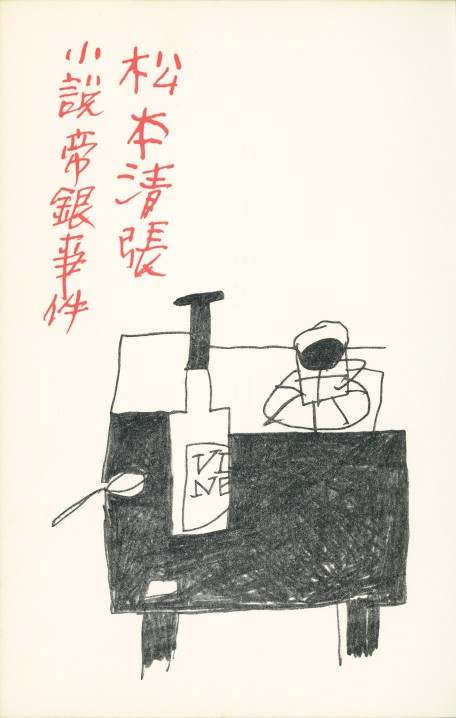 松本清張
小説帝銀事件
VI
NE